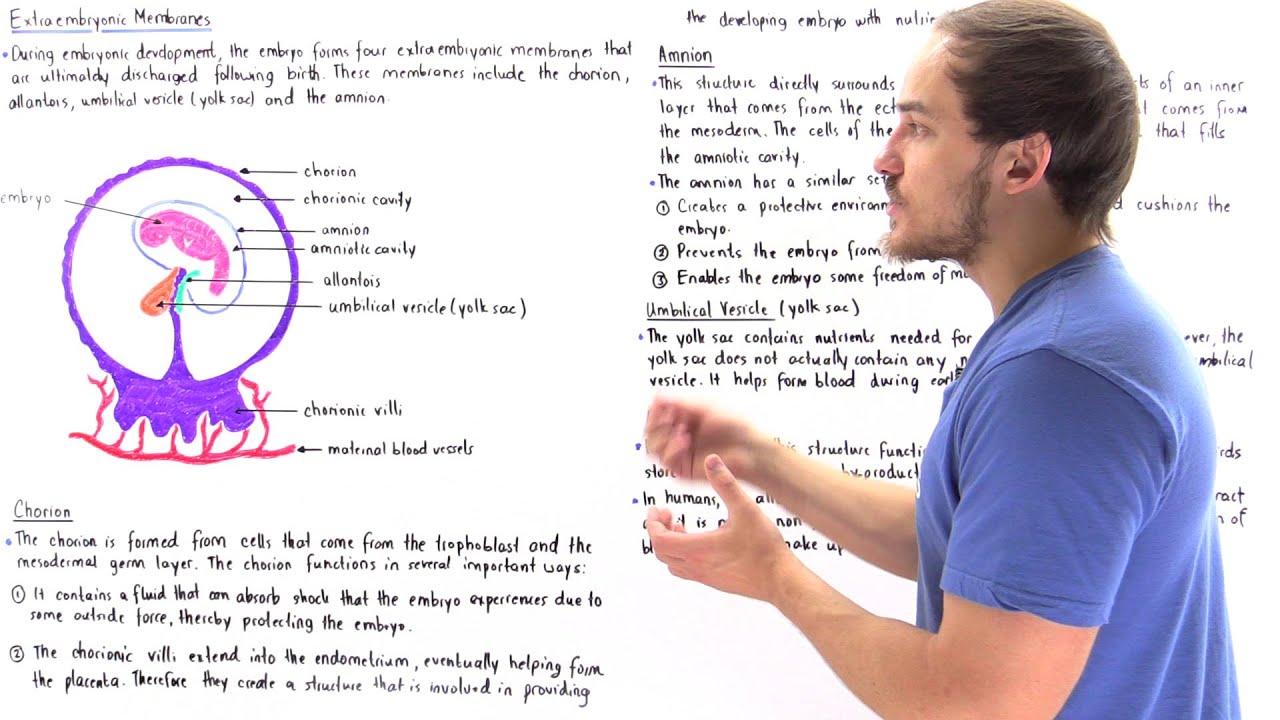 Extraembryonic Membranes
• During embryonic devdopment, the embryo forms four extraembryonic membranes that
are ultimatdy discharged following birth. These membranes include the chorion,
allantois, umbilical vesicle (yolk sac) and the amnion.
embryo
chorion
chorionic cavity
amnion
amniotic cavity
allantois
umbilical vesicle (yolk sac)
chorionic villi
maternal blood vessels
Chorion
• The chorion is formed from cells that come from the trophoblast and the
mesodermal germ layer. The chorion functions in several important ways:
① It contains a fluid that can absorb shock that the embryo experiences due to
some outside force, thereby protecting the embryo.
② The chorionic villi extend into the endometrium, eventually helping form
the placenta. Therefore they create a structure that is involved in providing
the developing embryo with
Amnion
• This structure directly surrounds of an inner
layer that comes from the comes from
the mesoderm. The cells of the that fills
the amniotic cavity.
• The amnion has a similar
① Creates a protective cushions the
embryo.
② Prevents the embryo from
③ Enables the embryo some freedom of
Umbilical Vesicle (yolk sac)
• The yolk sac contains nutrients needed for the
yolk sac does not actually contain any
vesicle. It helps form blood during
structure
• In humans,
is
make up